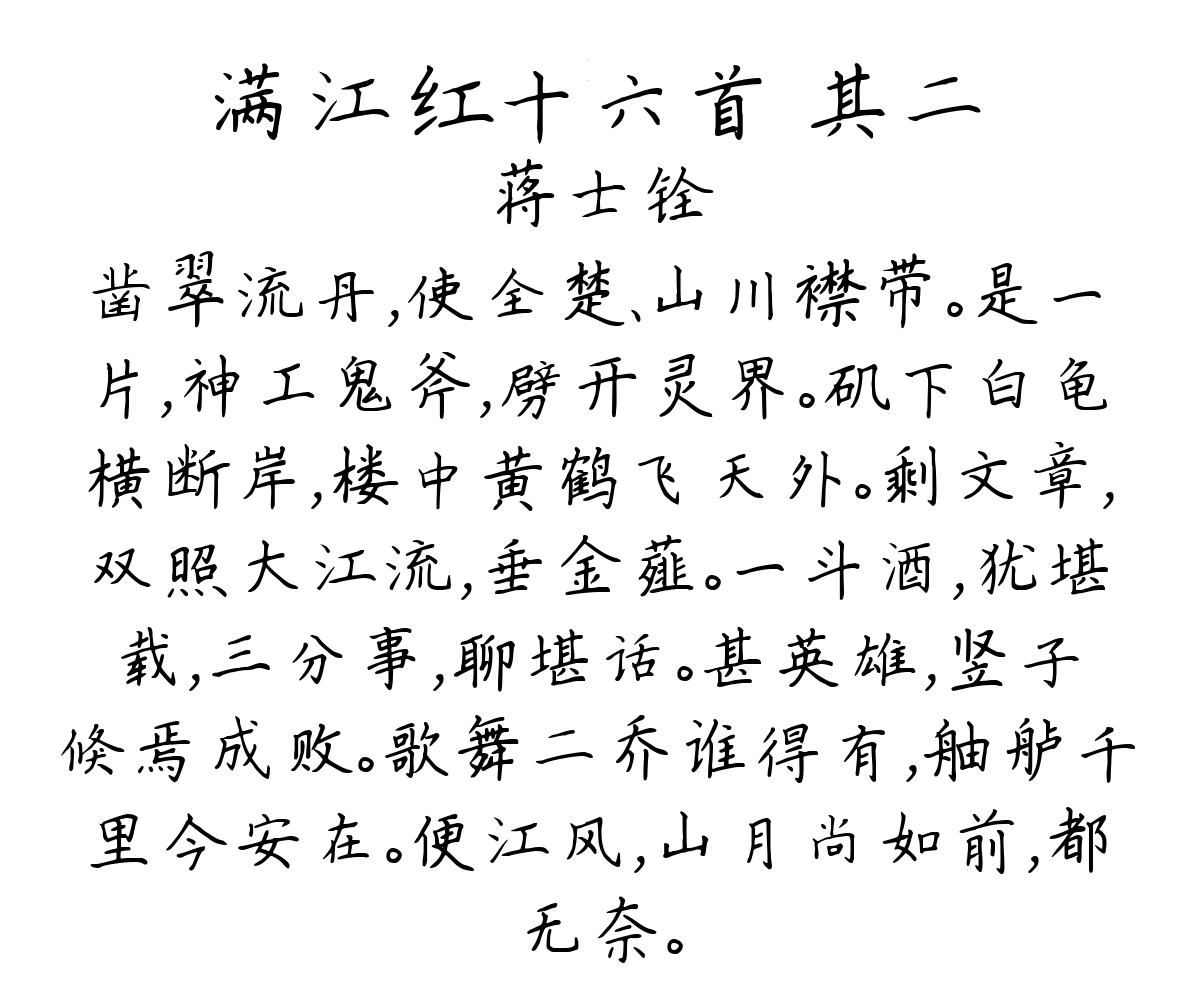 满江红十六首 其二
蒋士铨
凿翠流丹,使全楚、山川襟带。是一
片,神工鬼斧,劈开灵界。矶下白龟
横断岸,楼中黄鹤飞天外。剩文章,
双照大江流,垂金薤。一斗酒,犹堪
载,三分事,聊堪话。甚英雄,竖子
倏焉成败。歌舞二乔谁得有,舳舻千
里今安在。便江风,山月尚如前,都
无奈。